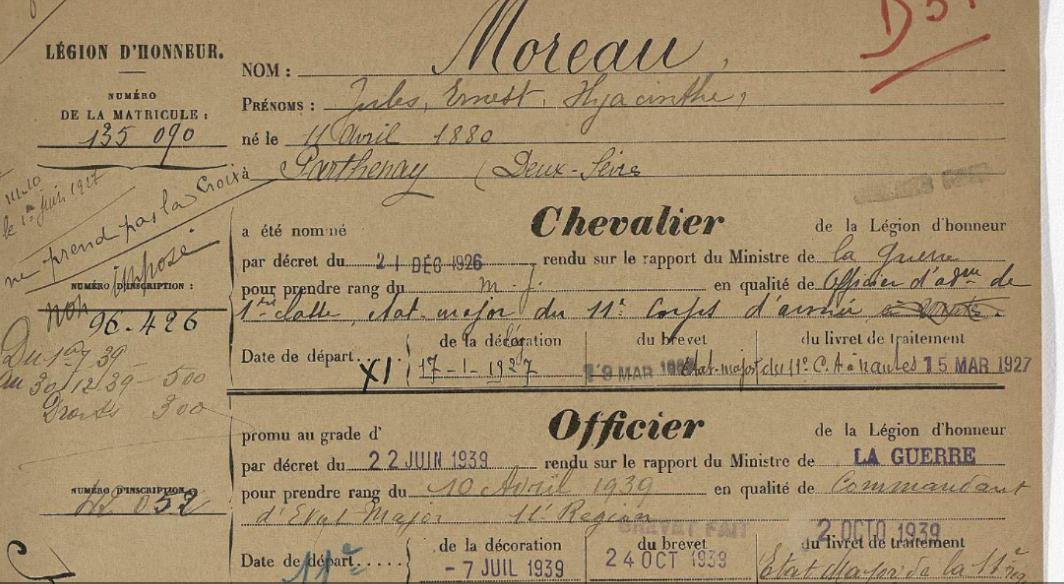 D
LÉGION D'HONNEUR.
NUMÉRO
DE LA MATRICULE :
135 090
NOM : Moreau,
PRÉNOMS : Jules, Ernest, Hyacinthe,
né le 11 Avril 1880
à Parthenay (Deux-Sèvres
le 1er juin 1927
ne prend pas la Croix
non imposé
NUMÉRO D'INSCRIPTION :
96.426
a été nommé Chevalier de la Légion d'honneur
par décret du 21 DÉC 1926 rendu sur le rapport du Ministre de la Guerre
pour prendre rang du m. j. en qualité de Officier d'adon de
1ère classe, état-major du 11e Corps d'armée
Date de départ..... de la décoration du brevet du livret de traitement
XI 17-1-1927 MAR Etat-major du 11e C.A à Nantes 15 MAR 1927
Du 1er 7 39
au 30/12/39 - 500
Droits 300
promu au grade d' Officier de la Légion d'honneur
par décret du 22 JUIN 1939 rendu sur le rapport du Ministre de LA GUERRE
NUMÉRO D'INSCRIPTION :
052
pour prendre rang du 10 Avril 1939 en qualité de Commandant
d'Etat Major 11e Région
BREVET FAIT
2 OCTO 1939
Date de départ..... de la décoration du brevet du livret de traitement
11e - 7 JUIL 1939 24 OCT 1939 Etat Major de la 11e